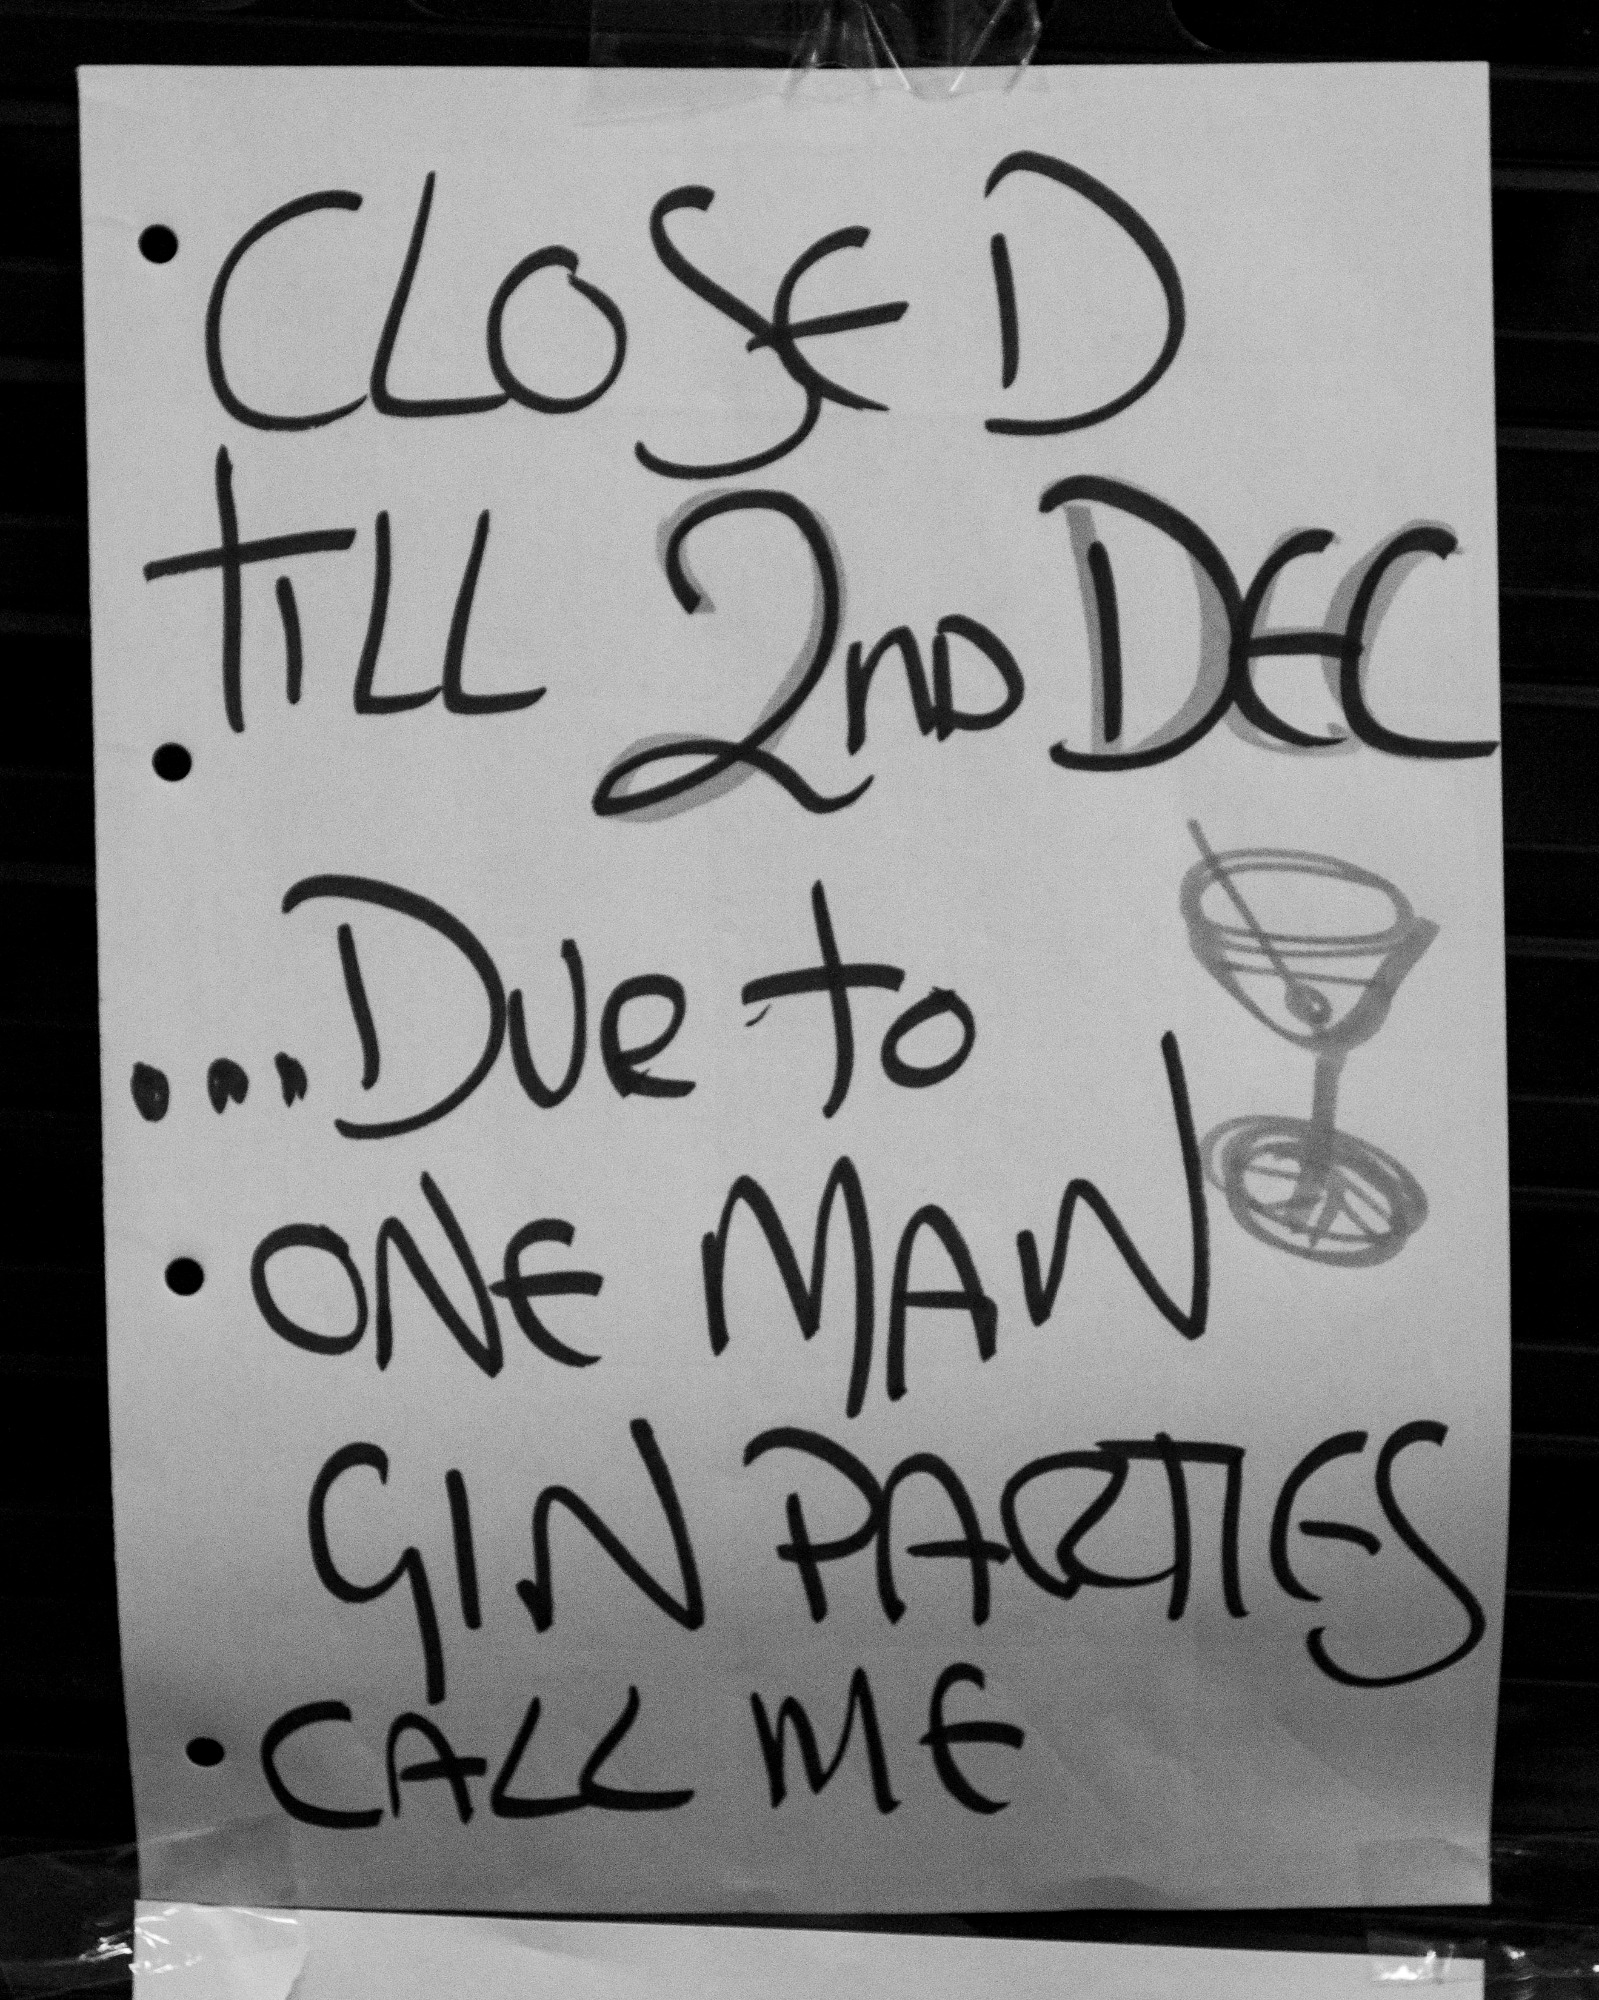 CLOSED
TILL 2ND DEC
...DUE to
ONE MAN
GIN PARTIES
CALL ME